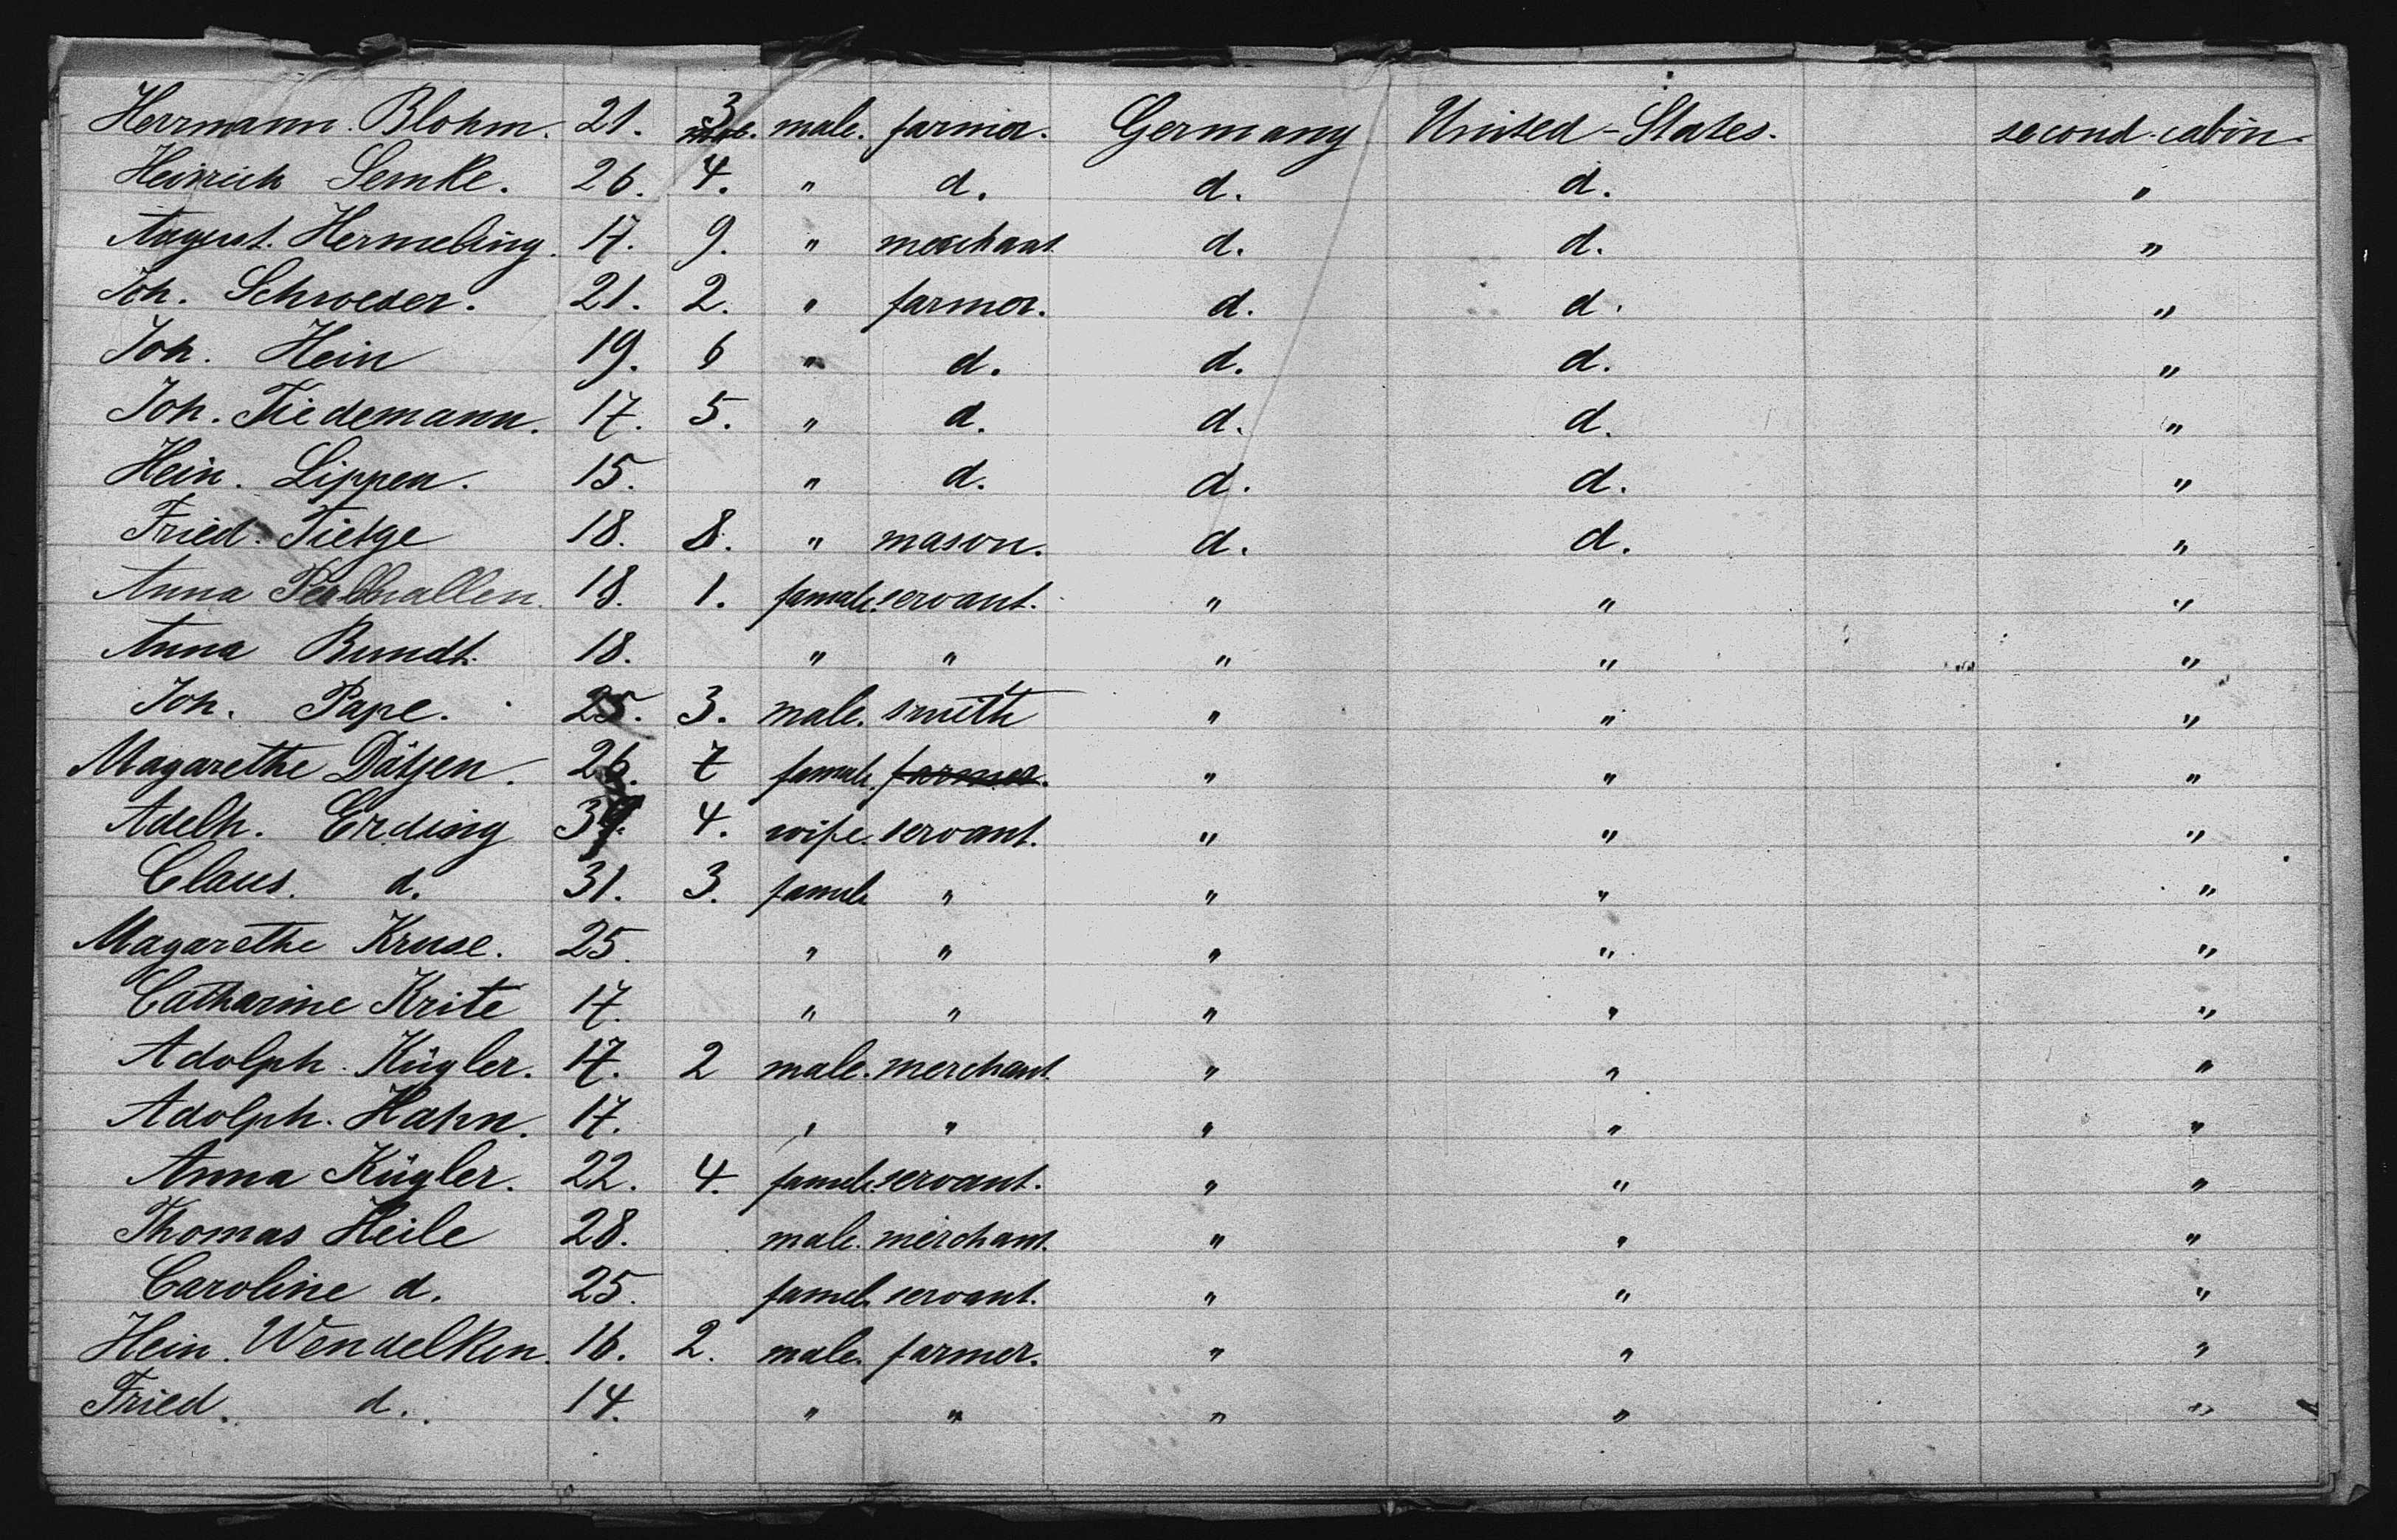 Herrmann. Blohm. 21. 3 male. farmer. Germany United-States. second-cabin.
Heinrich Semke. 26. 4. " d. d. d. "
August. Hermeling. 17. 9. " merchant d. d. "
Joh. Schroeder. 21. 2. " farmer. d. d. "
Joh. Hein 19. 6 " d. d. d. "
Joh. Tiedemann. 17. 5. " d. d. d. "
Hein. Lippen. 15. " d. d. d. "
Fried. Tietge 18. 8. " mason. d. d. "
Anna 18. 1. female. servant. " " "
Anna Bundt. 18. " " " " "
Joh. Pape. 25. 3. male. smith " " "
Magarethe Dätjen. 26. 7 female. farmer. " " "
Adelh. Erding 4. wife. servant. " " "
Claus. d. 31. 3. famele " " " "
Magarethe Kruse. 25. " " " " "
Catharine Krite 17. " " " " "
Adolph. Kügler. 17. 2 male. merchant. " " "
Adolph. Hahn. 17. " " " " "
Anna Kügler. 22. 4. famele. servant. " " "
Thomas Heile 28. male. merchant. " " "
Caroline d. 25. famele. servant. " " "
Hein. Wendelken. 16. 2. male. farmer. " " "
Fried. d. 14. " " " " "